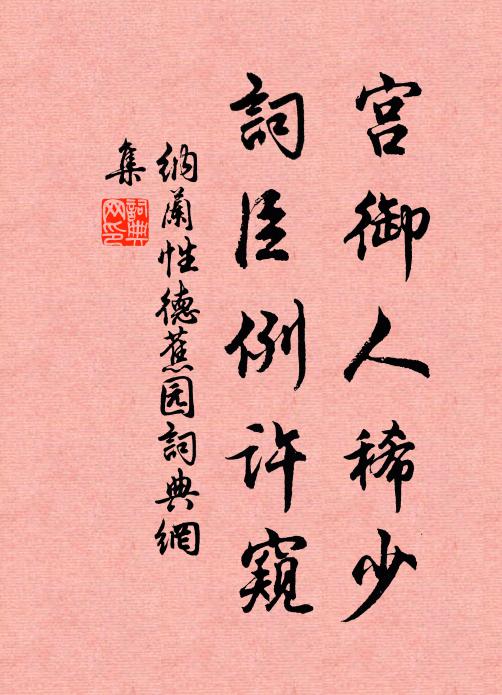 宫御人稀少
詞臣例许窺
纳蘭性德蕉园詞典網
集
詞典網印